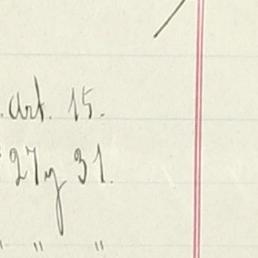 art. 15.
27 y 31.
" "